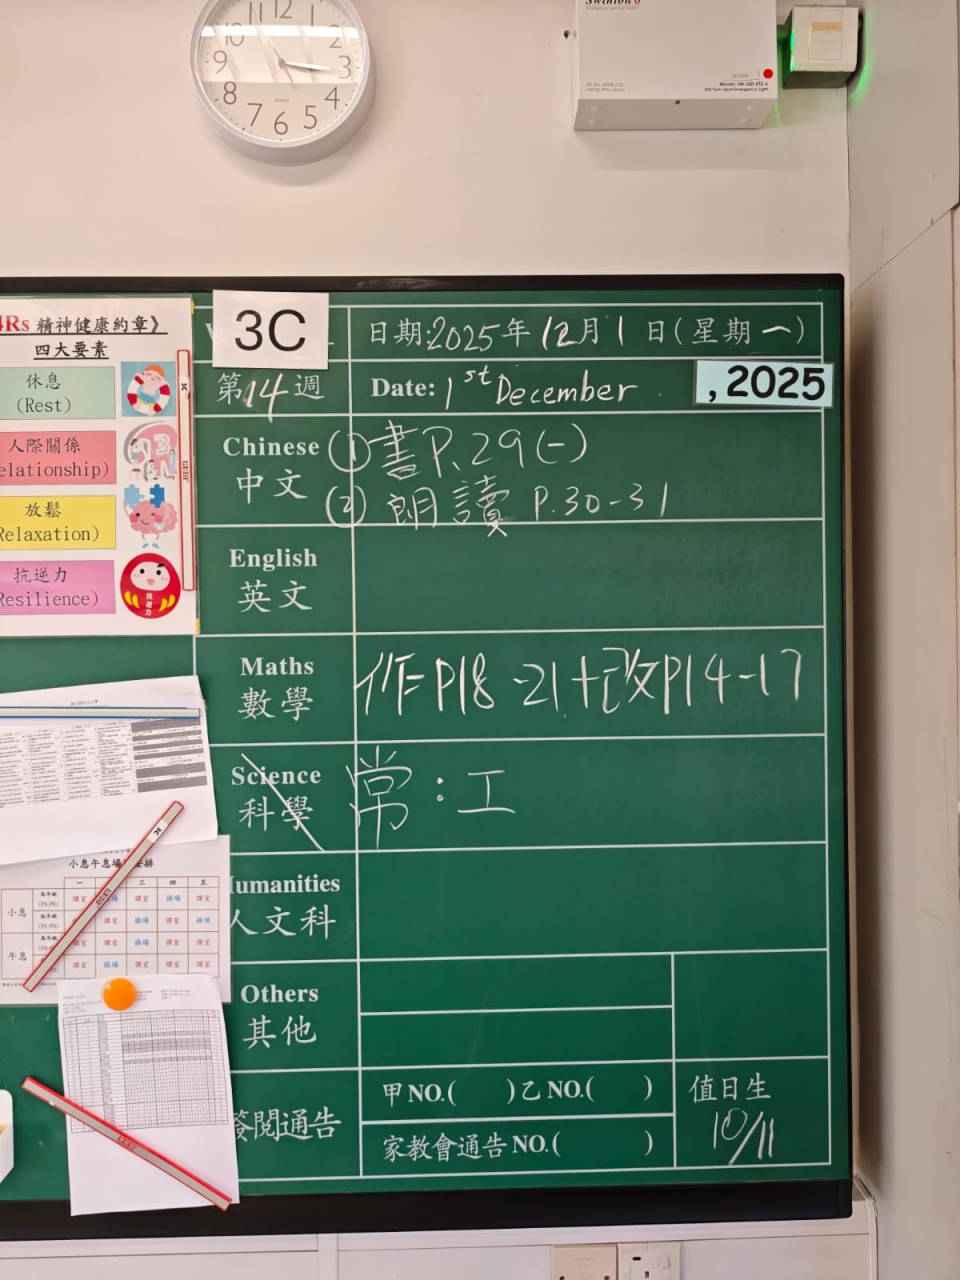 12
11
1
10
2
9
3
8
4
7
5
6
QUARTZ
Swinton 6
Model: SW-LED ET2-6
LED Twin Spot Emergency Light
4Rs 精神健康約章》
四大要素
休息
(Rest)
人際關係
elationship)
放鬆
Relaxation)
抗逆力
Resilience)
抗逆力
3C
日期:2025年12月1日(星期一)
第14週
Date: 1st December , 2025
Chinese
中文
(1)書P.29(一)
(2)朗讀 P.30-31
English
英文
Maths
數學
作P18-21+改P14-17
Science
科學
常:工
Humanities
人文科
Others
其他
簽閱通告
甲NO.( )乙NO.( )
家教會通告NO.( )
值日生
10/11
3C
小息午息場 安排
一 三 四 五
小息
高年級
(P4-P6)
課室 課室 操場 課室
低年級
(P1-P3)
課室 操場 課室 操場
午息
高年級
課室 課室 操場 課室 課室
課室 操場 課室 課室 課室